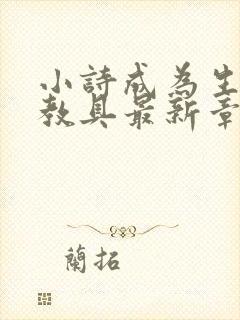 小詩成為生
教具最新章
蘭拓